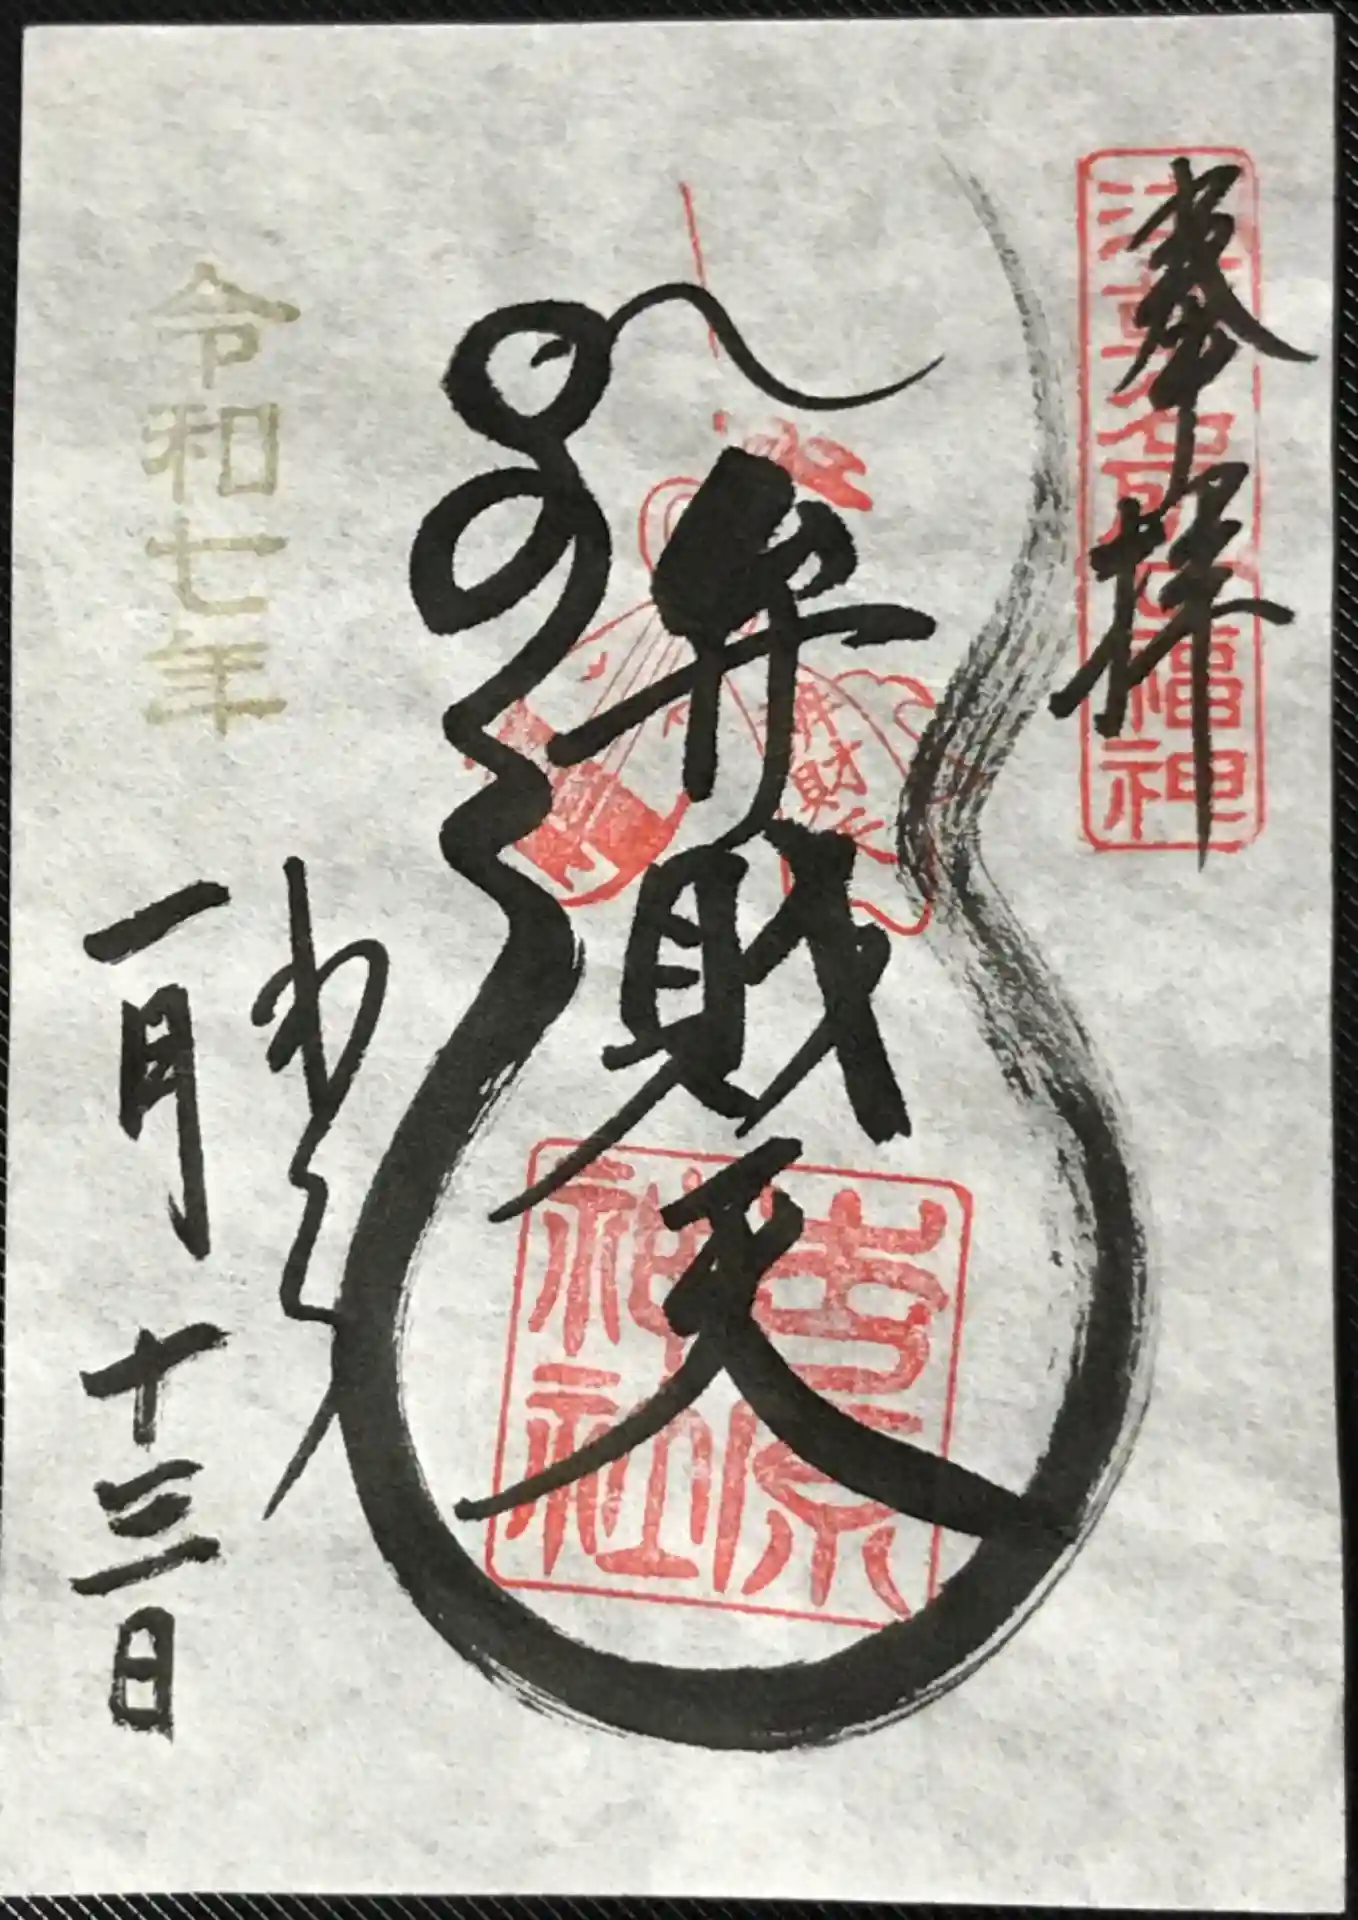 奉拝
浅草名所七福神
弁財天
弁財天
吉原神社
令和七年
一月十三日